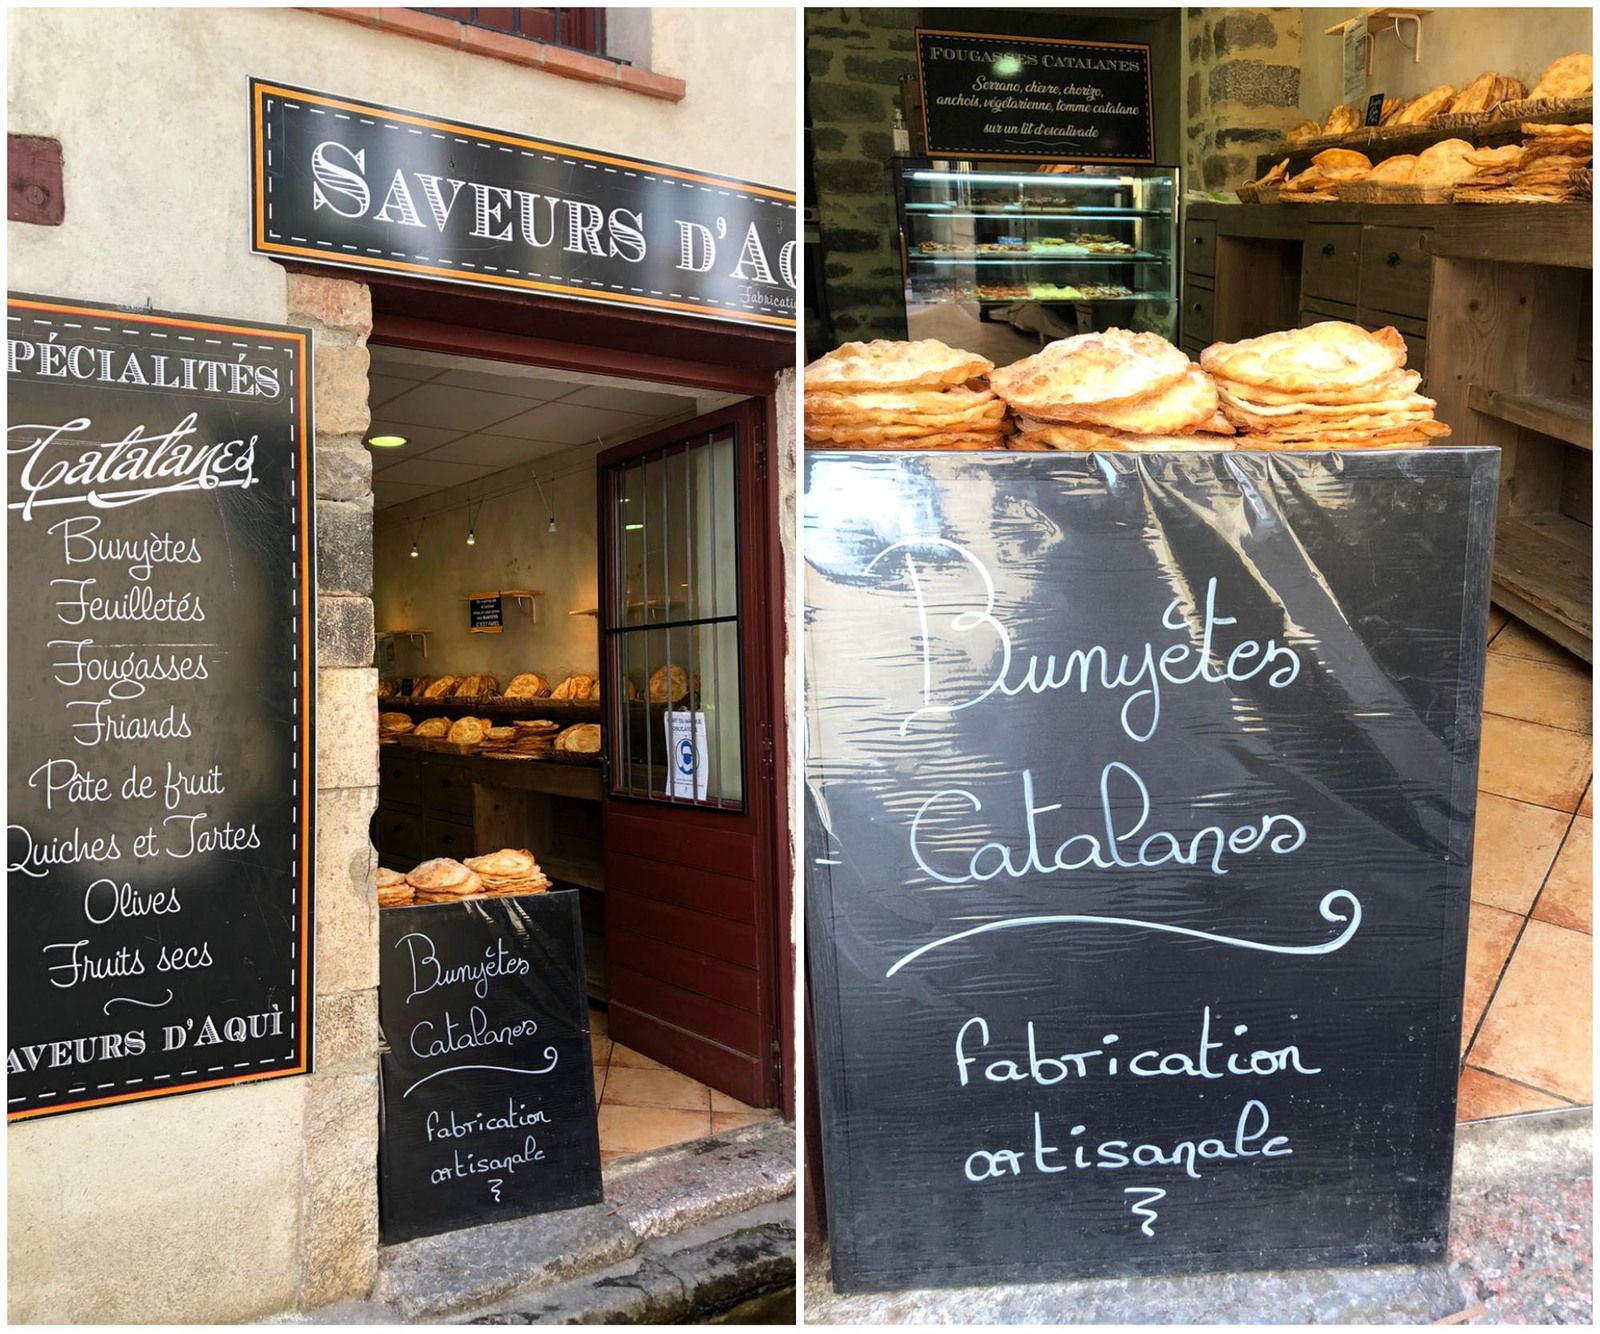 SAVEURS D'AQ
Fabricati
PÉCIALITÉS
Catalanes
Bunyètes
Feuilletés
Fougasses
Friands
Pâte de fruit
Quiches et Tartes
Olives
Fruits secs
AVEURS D'AQUÌ
Bunyètes
Catalanes
fabrication
artisanale
FOUGASSES CATALANES
Serrano, chèvre, chorizo,
anchois, végétarienne, tomme catalane
sur un lit d'escalivade
Bunyètes
Catalanes
fabrication
artisanale